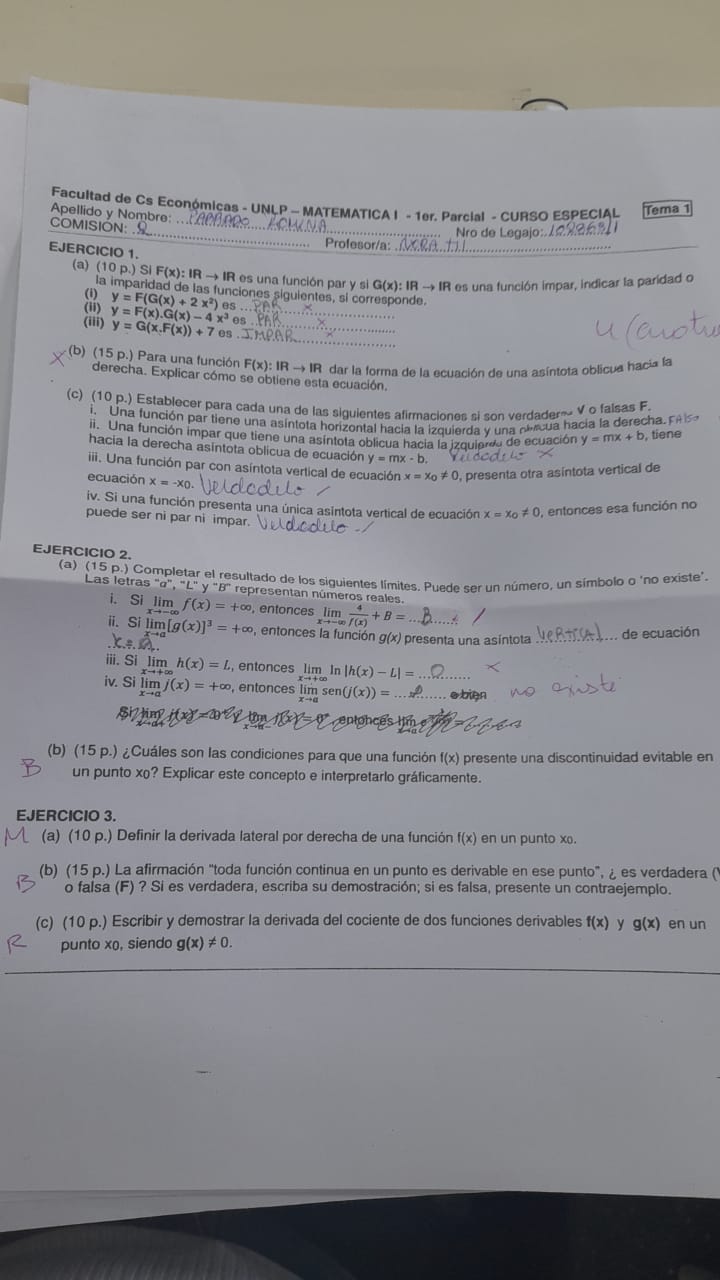 Facultad de Cs Económicas - UNLP – MATEMATICA I - 1er. Parcial - CURSO ESPECIAL Tema 1
Apellido y Nombre: ... ROMINA Nro de Legajo:
COMISIÓN: Profesor/a:
EJERCICIO 1.
(a) (10 p.) Si F(x): IR → IR es una función par y si G(x): IR → IR es una función impar, indicar la paridad o
la imparidad de las funciones siguientes, si corresponde.
(i) y = F(G(x) + 2 x²) es ... PAR ... x
(ii) y = F(x).G(x) – 4 x³ es ... PAR ... x
(iii) y = G(x.F(x)) + 7 es . IMPAR ... x
4 (cuatro
X (b) (15 p.) Para una función F(x): IR → IR dar la forma de la ecuación de una asíntota oblicua hacia la
derecha. Explicar cómo se obtiene esta ecuación.
(c) (10 p.) Establecer para cada una de las siguientes afirmaciones si son verdaderas V o falsas F.
i. Una función par tiene una asíntota horizontal hacia la izquierda y una oblicua hacia la derecha. FALSO
ii. Una función impar que tiene una asíntota oblicua hacia la izquierda de ecuación y = mx + b, tiene
hacia la derecha asíntota oblicua de ecuación y = mx - b. Verdadero x
iii. Una función par con asíntota vertical de ecuación x = x₀ ≠ 0, presenta otra asíntota vertical de
ecuación x = -x₀. Verdadero /
iv. Si una función presenta una única asíntota vertical de ecuación x = x₀ ≠ 0, entonces esa función no
puede ser ni par ni impar. Verdadero /
EJERCICIO 2.
(a) (15 p.) Completar el resultado de los siguientes límites. Puede ser un número, un símbolo o 'no existe'.
Las letras "a", "L" y "B" representan números reales.
i. Si lim x→−∞ f(x) = +∞, entonces lim x→−∞ 4/f(x) + B = ... B ... /
ii. Si lim x→a [g(x)]³ = +∞, entonces la función g(x) presenta una asíntota VERTICAL ... de ecuación
x = a.
iii. Si lim x→+∞ h(x) = L, entonces lim x→+∞ ln |h(x) − L| = ... 0 ... x
iv. Si lim x→a j(x) = +∞, entonces lim x→a sen(j(x)) = ... no existe
(b) (15 p.) ¿Cuáles son las condiciones para que una función f(x) presente una discontinuidad evitable en
B un punto x₀? Explicar este concepto e interpretarlo gráficamente.
EJERCICIO 3.
M (a) (10 p.) Definir la derivada lateral por derecha de una función f(x) en un punto x₀.
(b) (15 p.) La afirmación "toda función continua en un punto es derivable en ese punto", ¿ es verdadera (V
B o falsa (F) ? Si es verdadera, escriba su demostración; si es falsa, presente un contraejemplo.
(c) (10 p.) Escribir y demostrar la derivada del cociente de dos funciones derivables f(x) y g(x) en un
R punto x₀, siendo g(x) ≠ 0.